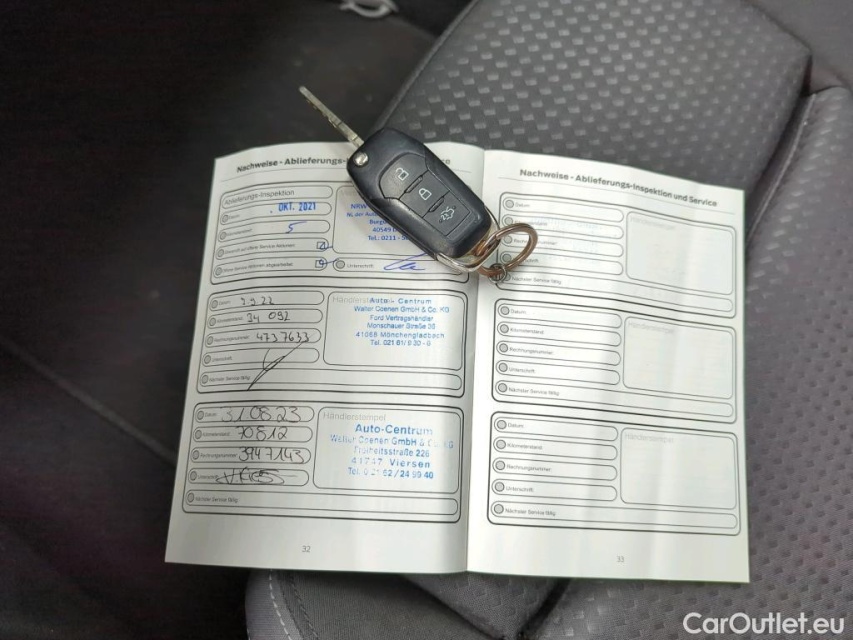 Nachweise - Ablieferungs-Inspektion und Service
Ablieferungs-Inspektion
OKT. 2021
5
Unterschrift:
Datum:
3.9.22
Kilometerstand:
34 092
Rechnungsnummer:
4737633
Unterschrift:
Nächster Service fällig:
Händlerstempel
Auto-Centrum
Walter Coenen GmbH & Co. KG
Ford Vertragshändler
Monschauer Straße 36
41068 Mönchengladbach
Tel. 0 21 61/
Datum:
31 08 23
Kilometerstand:
70812
Rechnungsnummer:
3947143
Unterschrift:
Nächster Service fällig:
Händlerstempel
Auto-Centrum
Walter Coenen GmbH & Co. KG
Freiheitsstraße 226
41747 Viersen
Tel. 0 21 62 / 24 99 40
32
Nachweise - Ablieferungs-Inspektion und Service
Datum:
Nächster Service fällig:
Händlerstempel
Datum:
Kilometerstand:
Rechnungsnummer:
Unterschrift:
Nächster Service fällig:
Händlerstempel
Datum:
Kilometerstand:
Rechnungsnummer:
Unterschrift:
Nächster Service fällig:
Händlerstempel
33
CarOutlet.eu